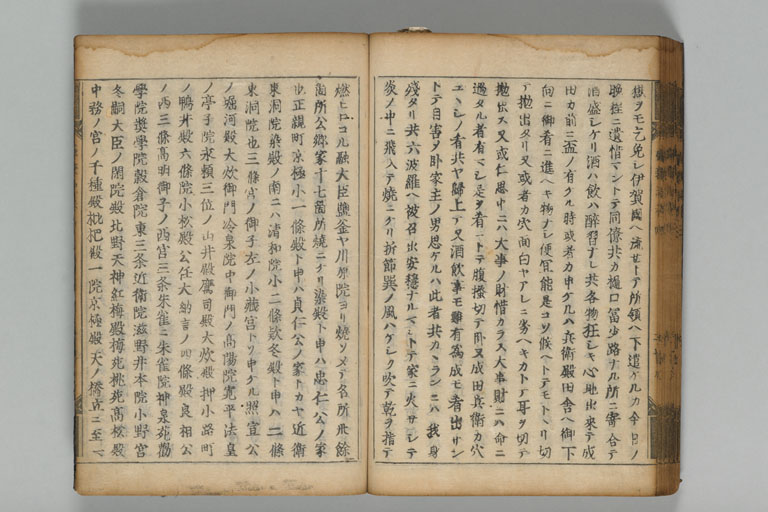 獄ヲモ乞免レ伊賀國ヘ流サルトテ所領ヘ下遣ケルカ今日ノ
晩程ニ遺惜マントテ同僚共カ樋口冨少路ナル所ニ寄合テ
酒盛シケリ酒ハ飲ハ醉習ナレ共各物狂シキ心地出来テ成
田カ前ニ盃ノ有ケル時或者カ申ケルハ兵衛殿田舎ヘ御下
向ニ御肴ニ進ヘキ物ナシ便冝能是コソ候ヘトテモトヽリ切
テ抛出タリ又或者カ穴面白ヤアレニ劣ヘキカトテ耳ヲ切テ
抛出ス又或仁思中ニハ大事ノ財惜カラス大事財ニハ命ニ
過タル者有マシ是ヲ肴ニトテ腹掻切テ臥又成田兵衛カ穴
ユヽシノ者共ヤ歸上テ又酒飲事モ難有為成モ肴出サン
トテ自害ヲ臥家主ノ男思ケルハ此者共カヽランニハ我身
殘タリ共六波羅ヘ被召出安穏ナルマシトテ家ニ火サシテ
炎ノ中ニ飛入テ燒ニケリ折節巽ノ風ハケシク吹テ乾ヲ指テ
燃ヒロコル融大臣鹽釜ヤ川原院ヨリ燒ソメテ名所卅餘
箇所公卿家十七箇所燒ニケリ染殿ト申ハ忠仁公ノ家
也正親町京極小一條殿ト申ハ貞仁公ノ家トカヤ近衛
東洞院染殿ノ南ニハ清和院小二條款冬殿ト申ハ二條
東洞院也三條宮ノ御子左ノ小藏宮トソ申ケル照宣公
ノ堀河殿大炊御門冷泉院中御門ノ髙陽院寛平法皇
ノ亭子院永頼三位ノ山井殿鷹司殿大炊殿押小路町
ノ鴨井殿六條院小松殿公任大納言ノ四條殿良相公
ノ西三條髙明御子ノ西宮三条朱雀ニ朱雀院神泉苑勸
學院奬學院穀倉院東三条近衛院滋野井本院小野宮
冬嗣大臣ノ閑院殿北野天神紅梅殿梅苑桃苑髙松殿
中務ノ宮ノ千種殿枇杷殿一院京極殿天ノ橋立ニ至マ